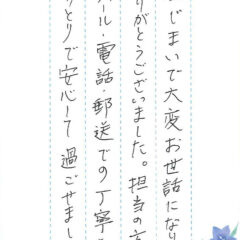 じまいで大変お世話になり
がとうございました。担当の方
ール・電話・郵送での丁寧
とりで安心して過ごせまし